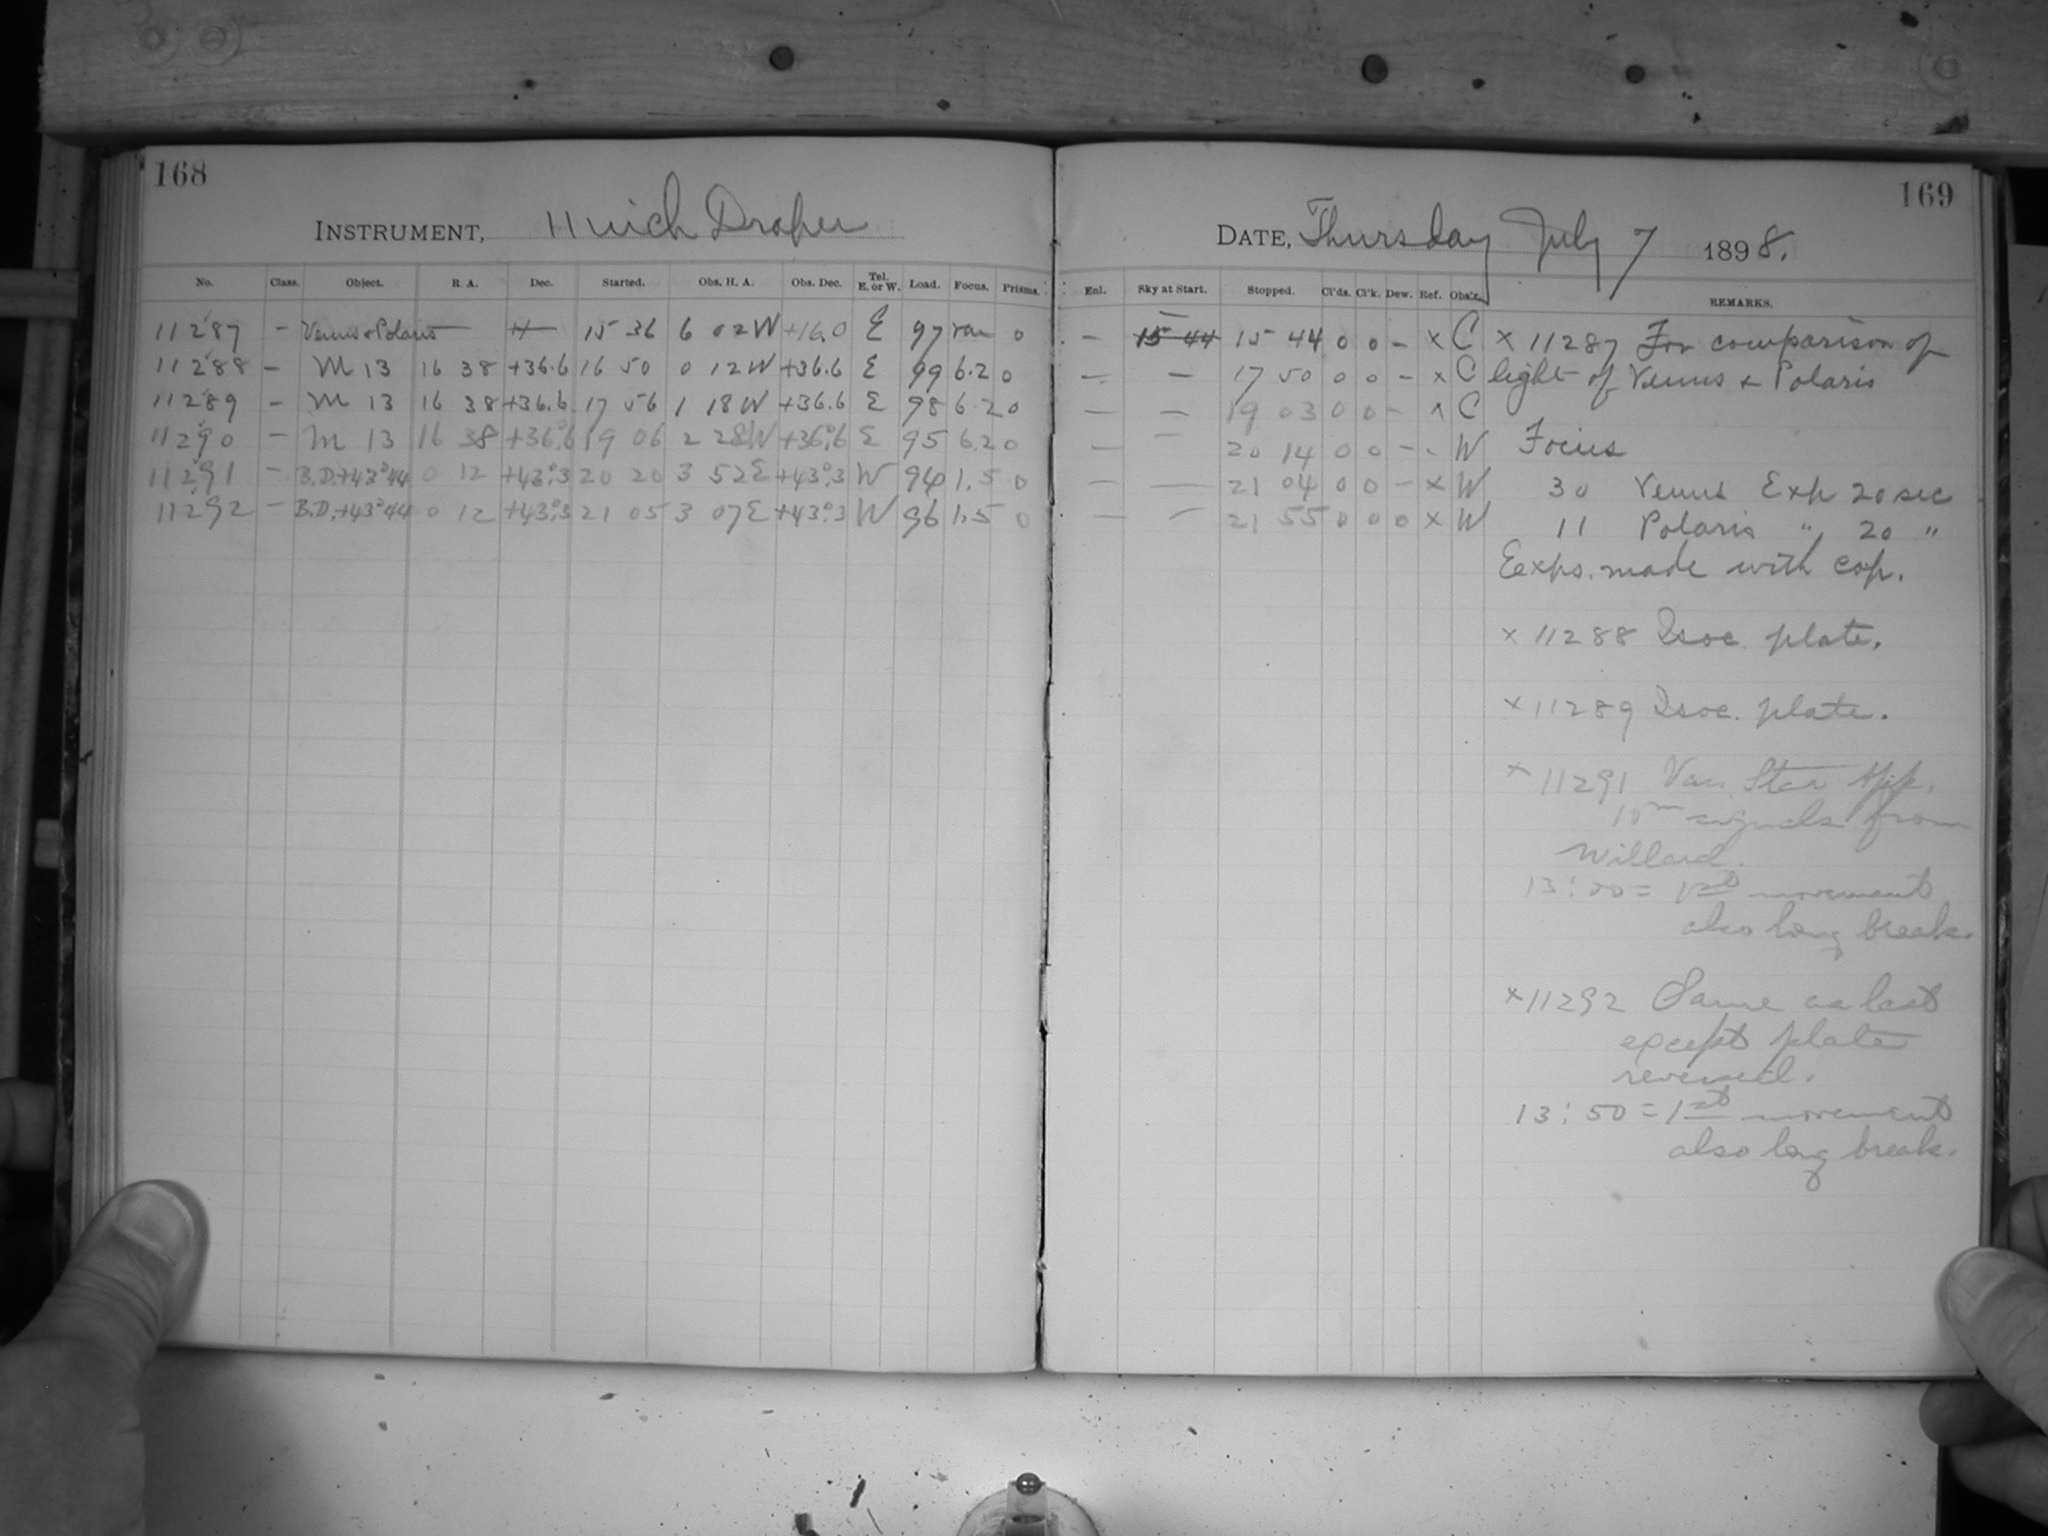 168
INSTRUMENT, 11 inch Draper
No. Class. Object. R. A. Dec. Started. Obs. H. A. Obs. Dec. Tel. E. or W. Load. Focus. Prisms.
11287 – Venus & Polaris — 15 36 6 02 W +16.0 E 97 var 0
11288 – M 13 16 38 +36.6 16 50 0 12 W +36.6 E 99 6.2 0
11289 – M 13 16 38 +36.6 17 56 1 18 W +36.6 E 98 6.2 0
11290 – M 13 16 38 +36°.6 19 06 2 28 W +36°.6 E 95 6.2 0
11291 – B.D.+43°44 0 12 +43°.3 20 20 3 52 E +43°.3 W 94 1.5 0
11292 – B.D.+43°44 0 12 +43°.3 21 05 3 07 E +43°.3 W 96 1.5 0
169
DATE, Thursday July 7 1898.
Enl. Sky at Start. Stopped. Cl'ds. Cl'k. Dew. Ref. Obs'r. REMARKS.
– 15 44 15 44 0 0 – x C x 11287 For comparison of
– – 17 50 0 0 – x C light of Venus & Polaris
– – 19 03 0 0 – x C
– – 20 14 0 0 – - W Focus
– – 21 04 0 0 – x W 30 Venus Exp 20 sec
– – 21 55 0 0 0 x W 11 Polaris " 20 "
Exps. made with cap.
x 11288 Isoc. plate.
x 11289 Isoc. plate.
x 11291 Var. Star App.
10m signals from
Willard.
13:00 = 1st movement
also long break.
x 11292 Same as last
except plate
reversed.
13:50 = 1st movement
also long break.